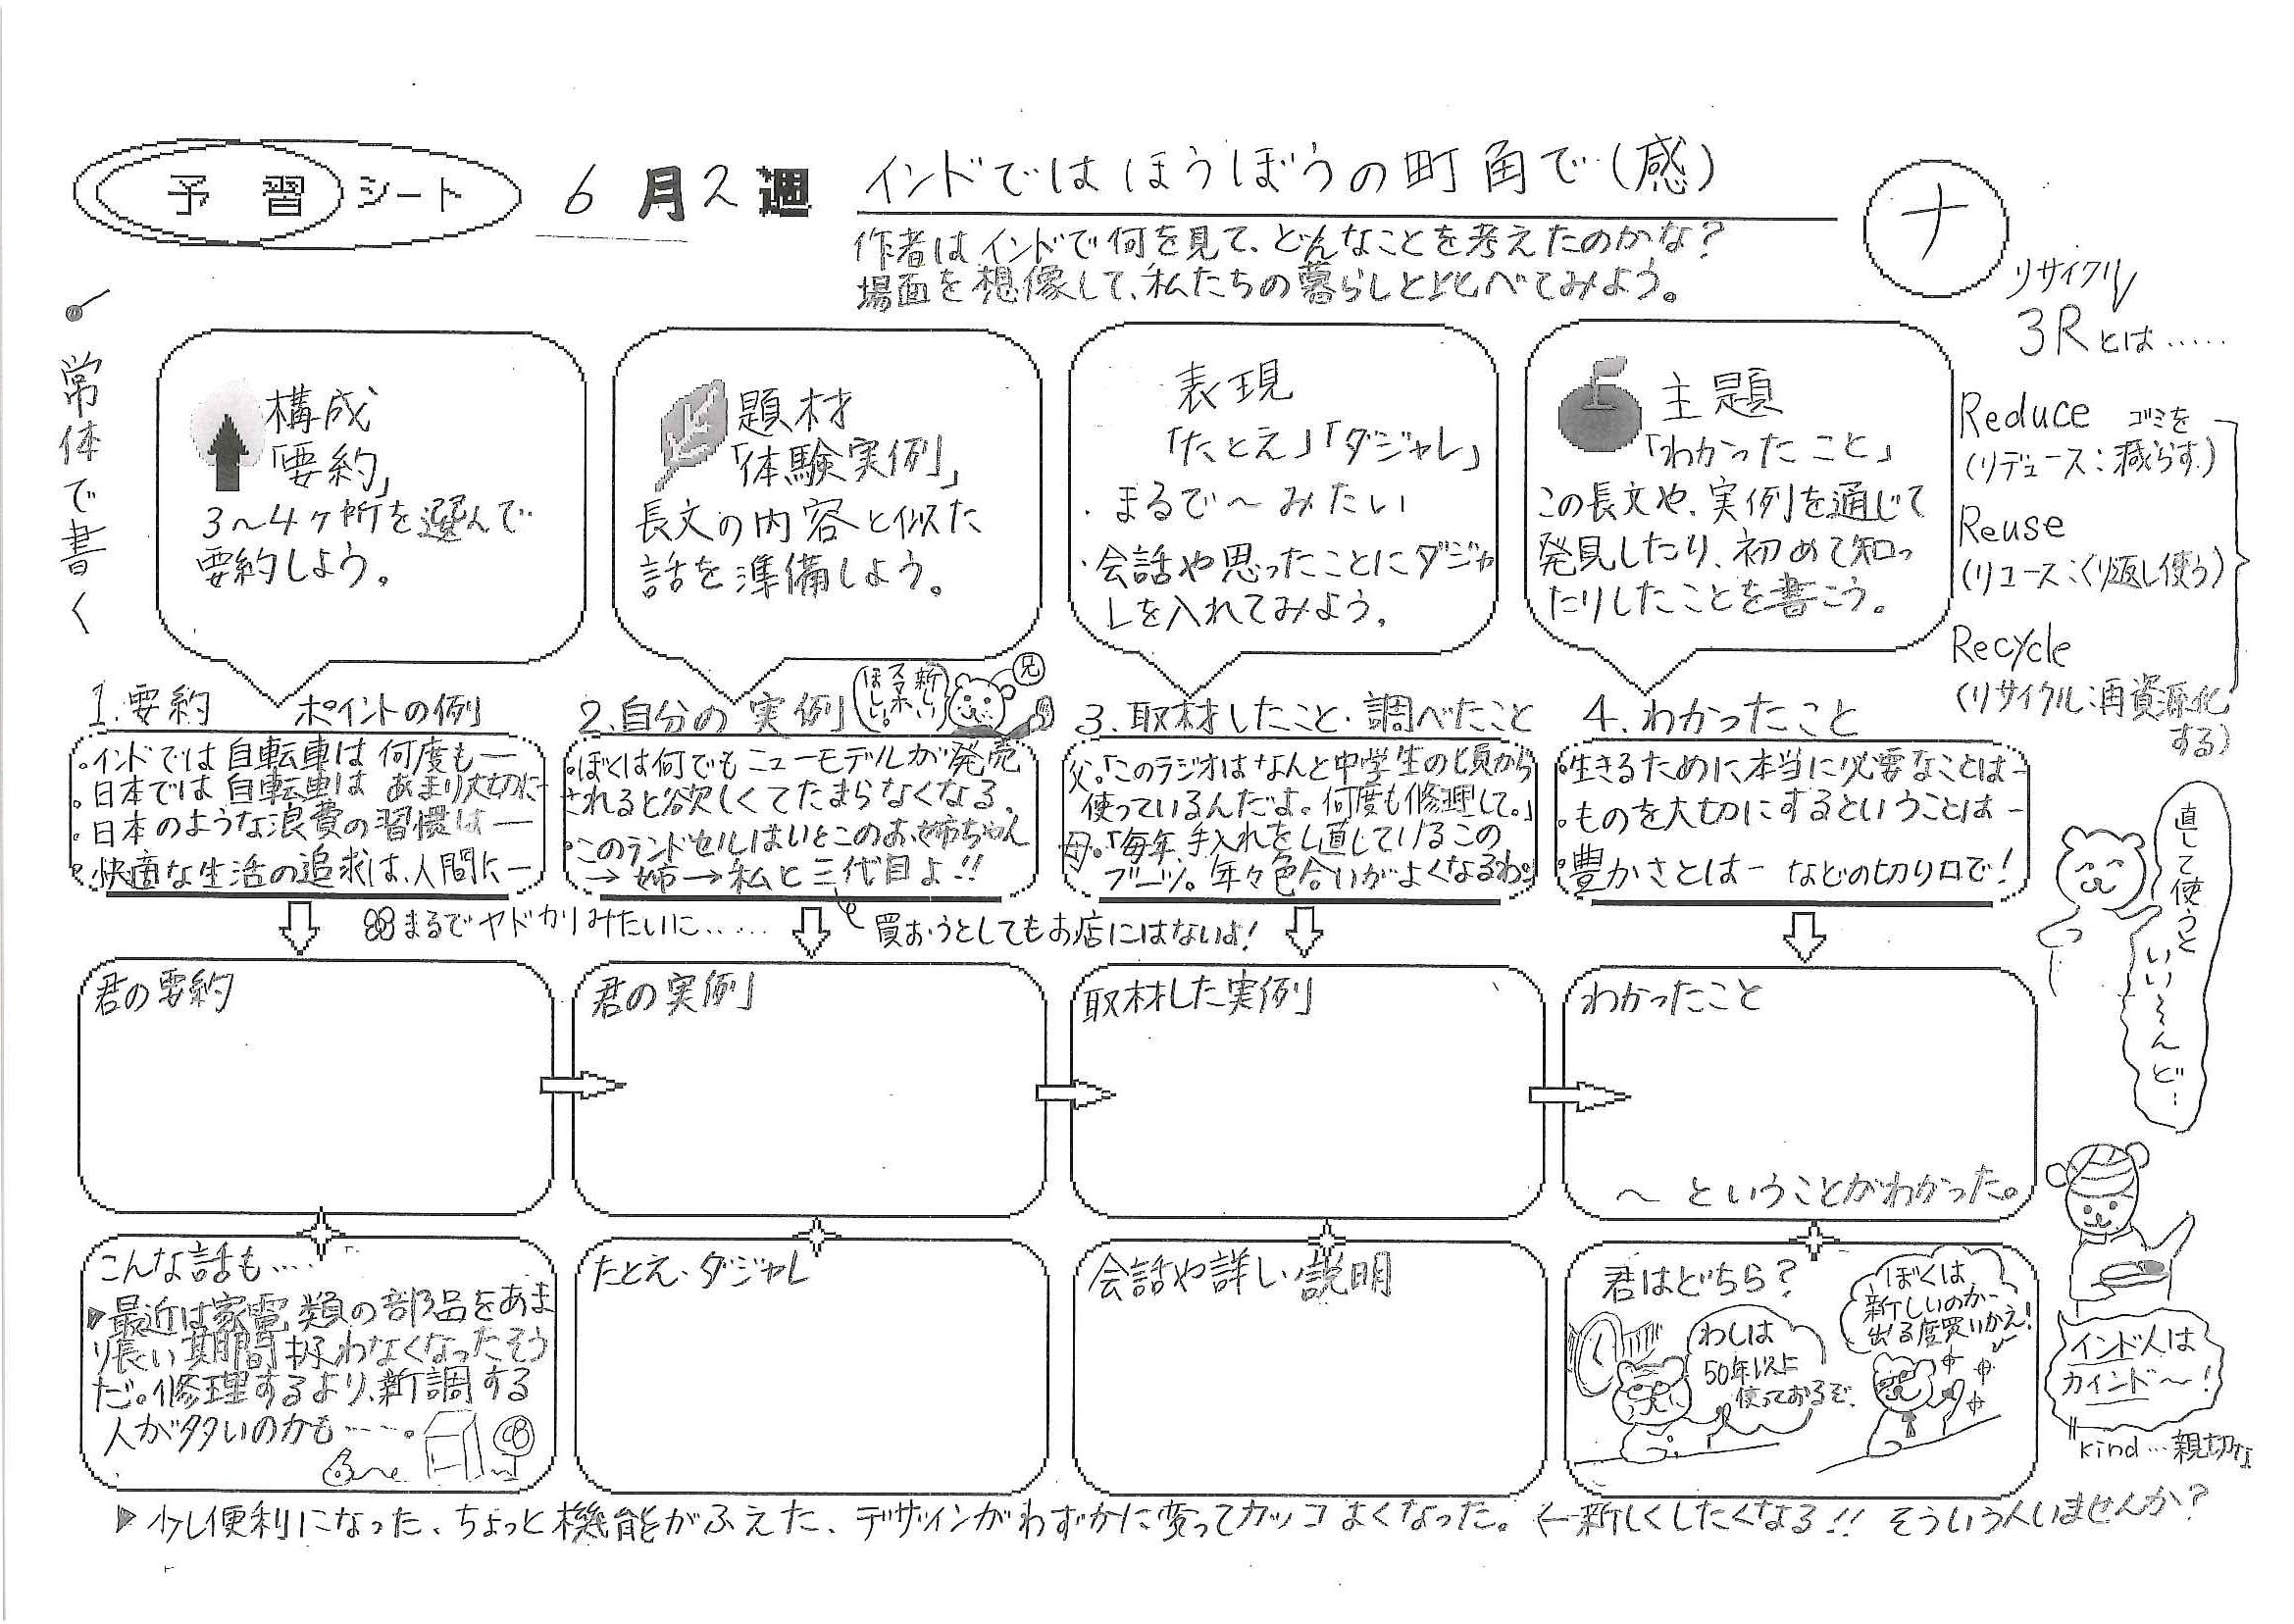 予習シート
6月2週
インドでは ほうぼうの町角で(感)
ナ
作者はインドで何を見て、どんなことを考えたのかな?
場面を想像して、私たちの暮らしと比べてみよう。
常体で書く
リサイクル
3Rとは……
Reduce ゴミを
(リデュース:減らす)
Reuse
(リユース:くり返し使う)
Recycle
(リサイクル:再資源化
する)
構成
「要約」
3〜4ヶ所を選んで
要約しよう。
題材
「体験実例」
長文の内容と似た
話を準備しよう。
表現
「たとえ」「ダジャレ」
・まるで〜みたい
・会話や思ったことにダジャ
レを入れてみよう。
主題
「わかったこと」
この長文や、実例を通じて
発見したり、初めて知っ
たりしたことを書こう。
1.要約 ポイントの例
・インドでは自転車は何度も―
・日本では自転車はあまり大切に―
・日本のような浪費の習慣は―
・快適な生活の追求は、人間に―
2.自分の実例
新しい
スマホ
ほしい。
兄
・ぼくは何でもニューモデルが発売
されると欲しくてたまらなくなる。
・このランドセルはいとこのお姉ちゃん
→姉→私と三代目よ!!
3.取材したこと・調べたこと
父。「このラジオはなんと中学生の頃から
使っているんだよ。何度も修理して。」
母。「毎年、手入れをし直しているこの
ブーツ。年々色合いがよくなるわ。
4.わかったこと
・生きるために本当に必要なことは―
・ものを大切にするということは―
・豊かさとは― などの切り口で!
まるでヤドカリみたいに……
買おうとしてもお店にはないよ!
直して使うと
いい〜んど…
君の要約
君の実例
取材した実例
わかったこと
〜ということがわかった。
こんな話も‥‥
▶最近は家電類の部品をあま
り長い期間扱わなくなったそう
だ。修理するより、新調する
人が多いのかも……。
たとえ・ダジャレ
会話や詳しい説明
君はどちら?
わしは
50年以上
使っておるぞ。
ぼくは
新しいのが
出る度買いかえ!
インド人は
カインド〜!
kind…親切な
▶少し便利になった、ちょっと機能がふえた、デザインがわずかに変ってカッコよくなった。←新しくしたくなる!! そういう人いませんか?